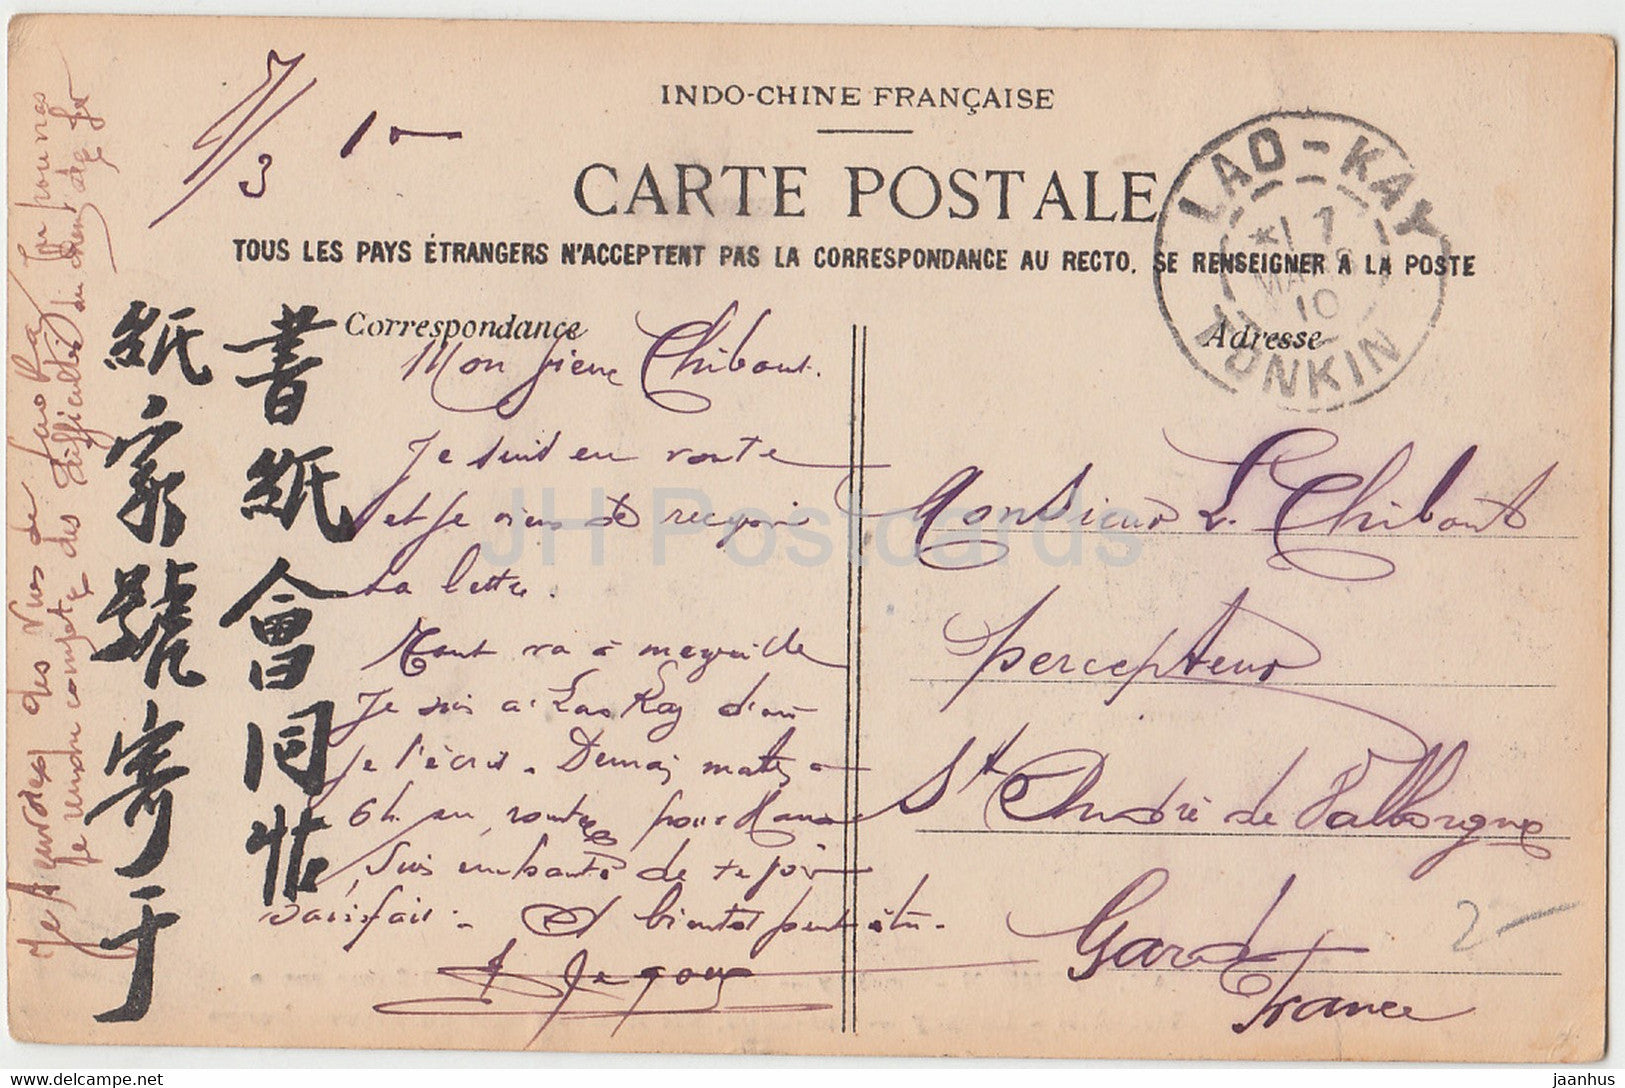 7/3 10
INDO-CHINE FRANÇAISE
CARTE POSTALE
TOUS LES PAYS ÉTRANGERS N'ACCEPTENT PAS LA CORRESPONDANCE AU RECTO. SE RENSEIGNER A LA POSTE
LAO-KAY
7
MARS
10
TONKIN
Correspondance
Adresse
Mon Chibout.
Je suis en route
et je viens de recevoir
ta lettre.
Tout va à merveille
Je suis à Lao Kay d'où
je t'écris. Demain matin
6h en route pour
Suis de
satisfait. A bientôt peut-être.
Monsieur L. Chibout
percepteur
St André de Valborgne
Gard
France
des vues de Lao Kay
je rendre compte des difficultés du chemin de fer
書紙會同
紙家號寄于
2-
JH Postcards
www.delcampe.net
jaanhus